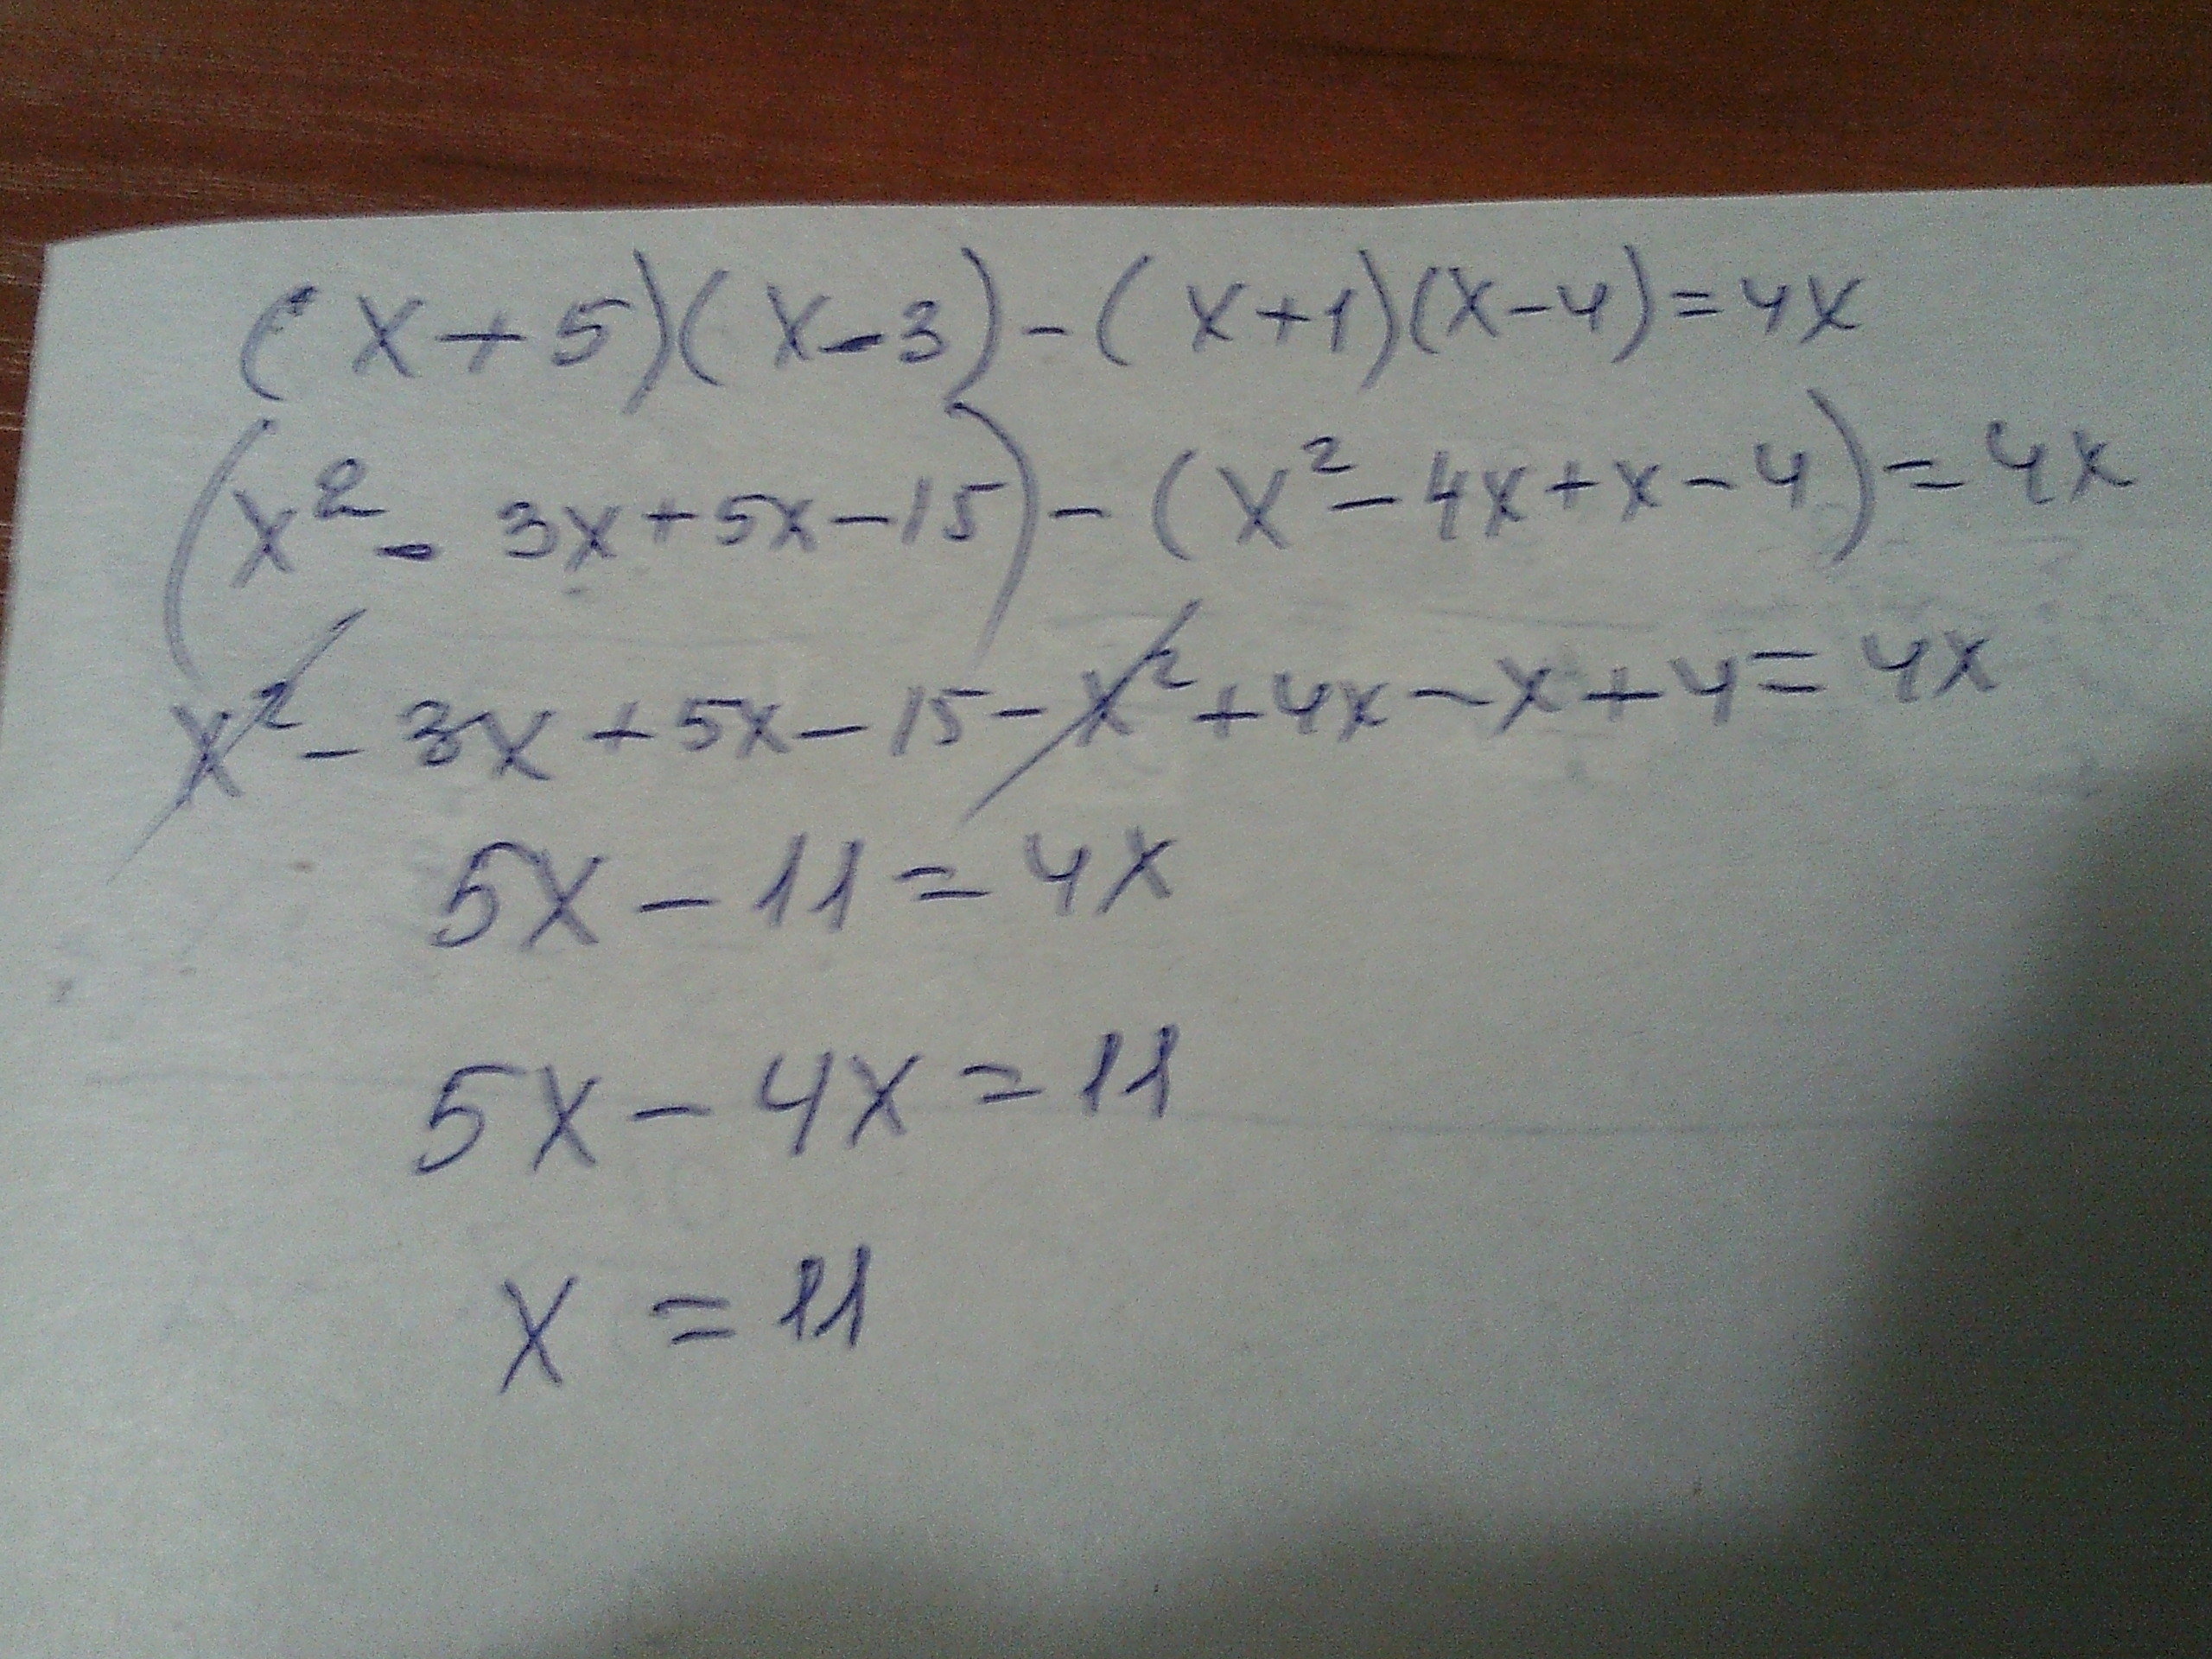 (x+5)(x-3)-(x+1)(x-4)=4x
(x²-3x+5x-15)-(x²-4x+x-4)=4x
x²-3x+5x-15-x²+4x-x+4=4x
5x-11=4x
5x-4x=11
x=11